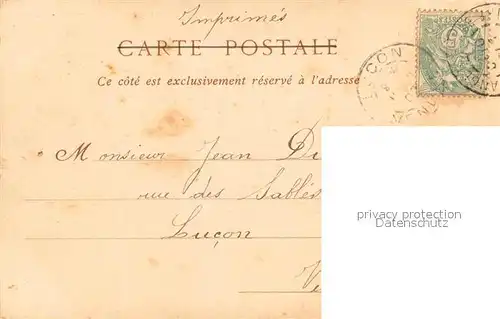 Imprimés
CARTE POSTALE
Ce côté est exclusivement réservé à l'adresse
LUÇON
Monsieur Jean Du
rue des Sables
Luçon
V
privacy protection
Datenschutz